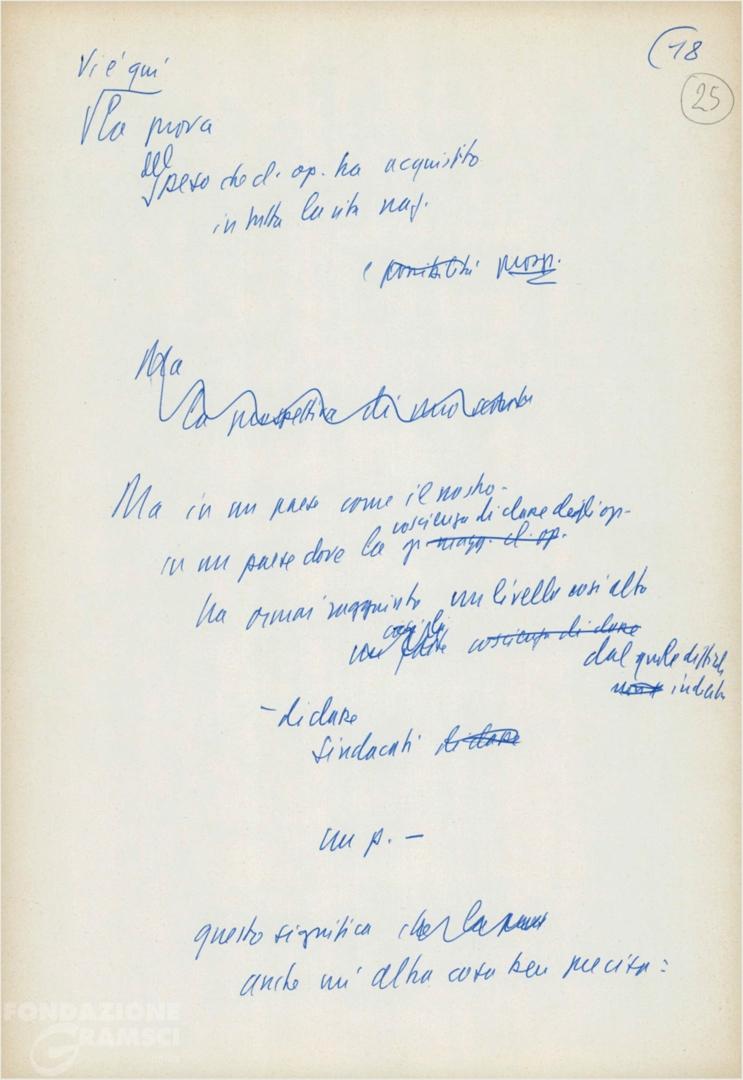 (18
25
Vi è quì
la prova
del
peso che cl. op. ha acquistito
in tutta la vita naz.
e possibilità prosp.
Ma
la prospettiva di uno
Ma in un paese come il nostro-
coscienza di classe degli op-
in un paese dove la
cl. op.
ha ormai raggiunto un livello così alto
coscienza di classe
dal quale
- di classe
sindacati di classe
un p. -
questo significa che la
anche un'altra cosa ben precisa:
FONDAZIONE
GRAMSCI